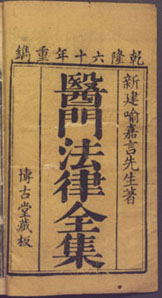 乾隆六十年重鐫
新建喻嘉言先生著
醫門法律全集
博古堂藏板